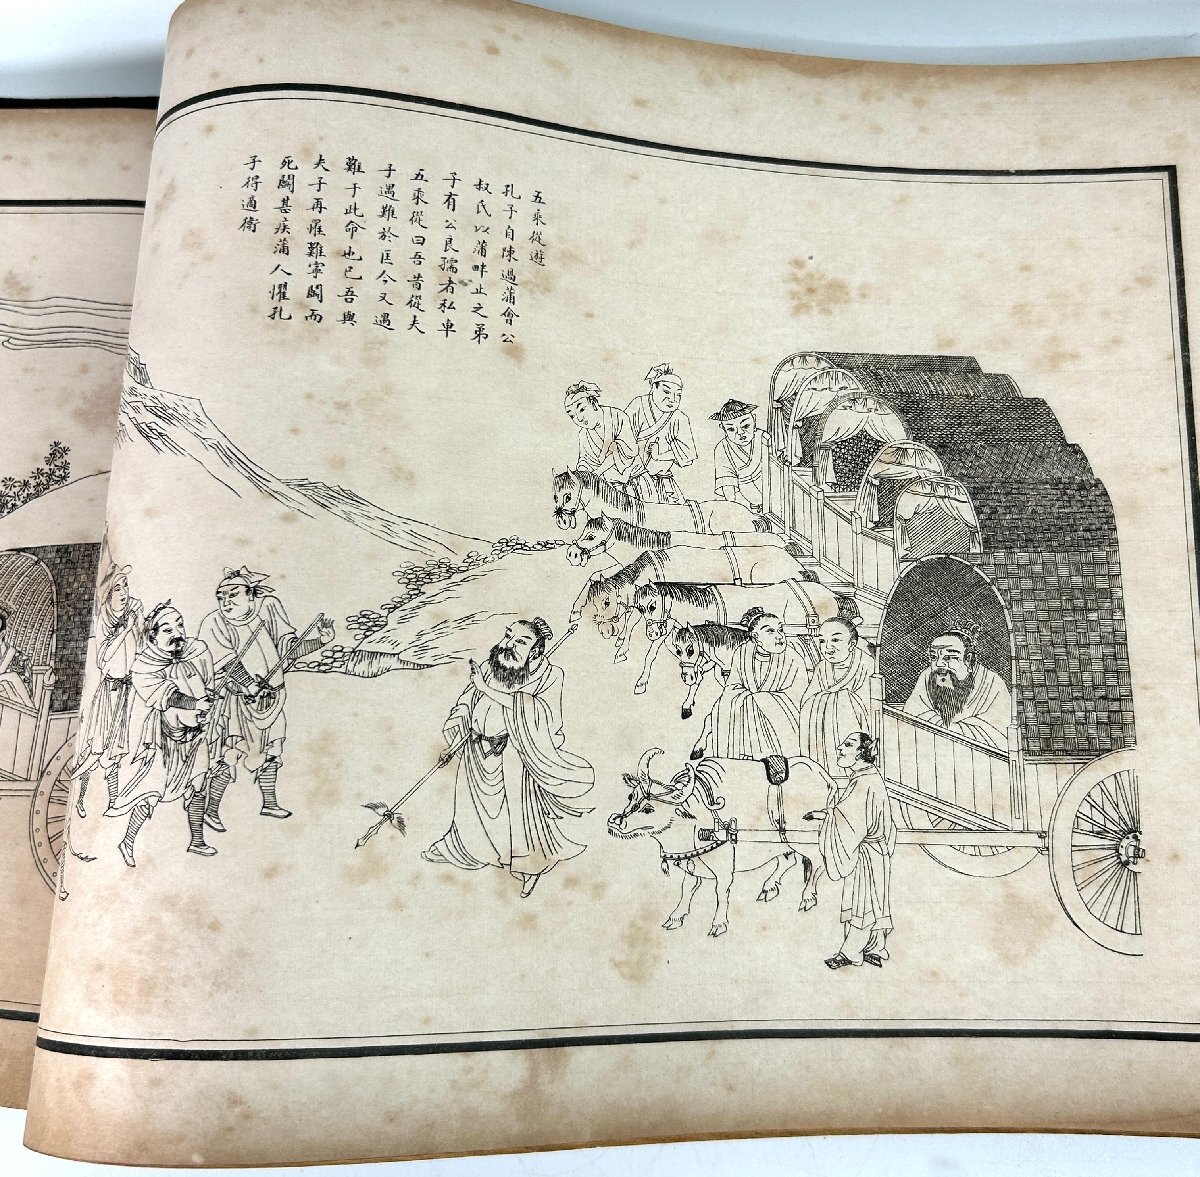 五乘從遊
孔子自陳過蒲會公
叔氏以蒲畔止之弟
子有公良孺者私車
五乘從曰吾昔從夫
子遇難於匡今又遇
難于此命也已吾與
夫子再罹難寧鬬而
死鬬甚疾蒲人懼孔
子得適衛